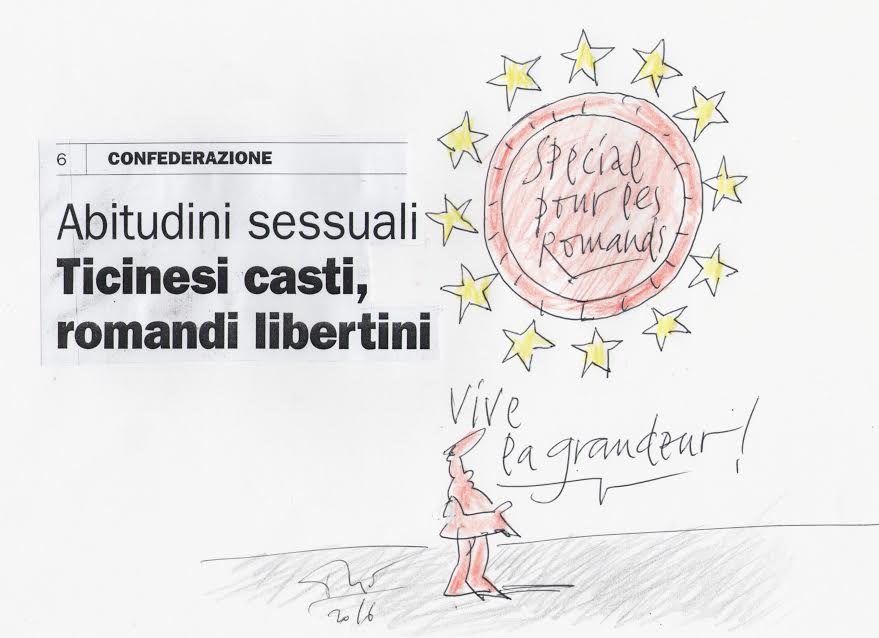 6 CONFEDERAZIONE
Abitudini sessuali
Ticinesi casti,
romandi libertini
Special
pour les
Romands
Vive
la grandeur!
2016